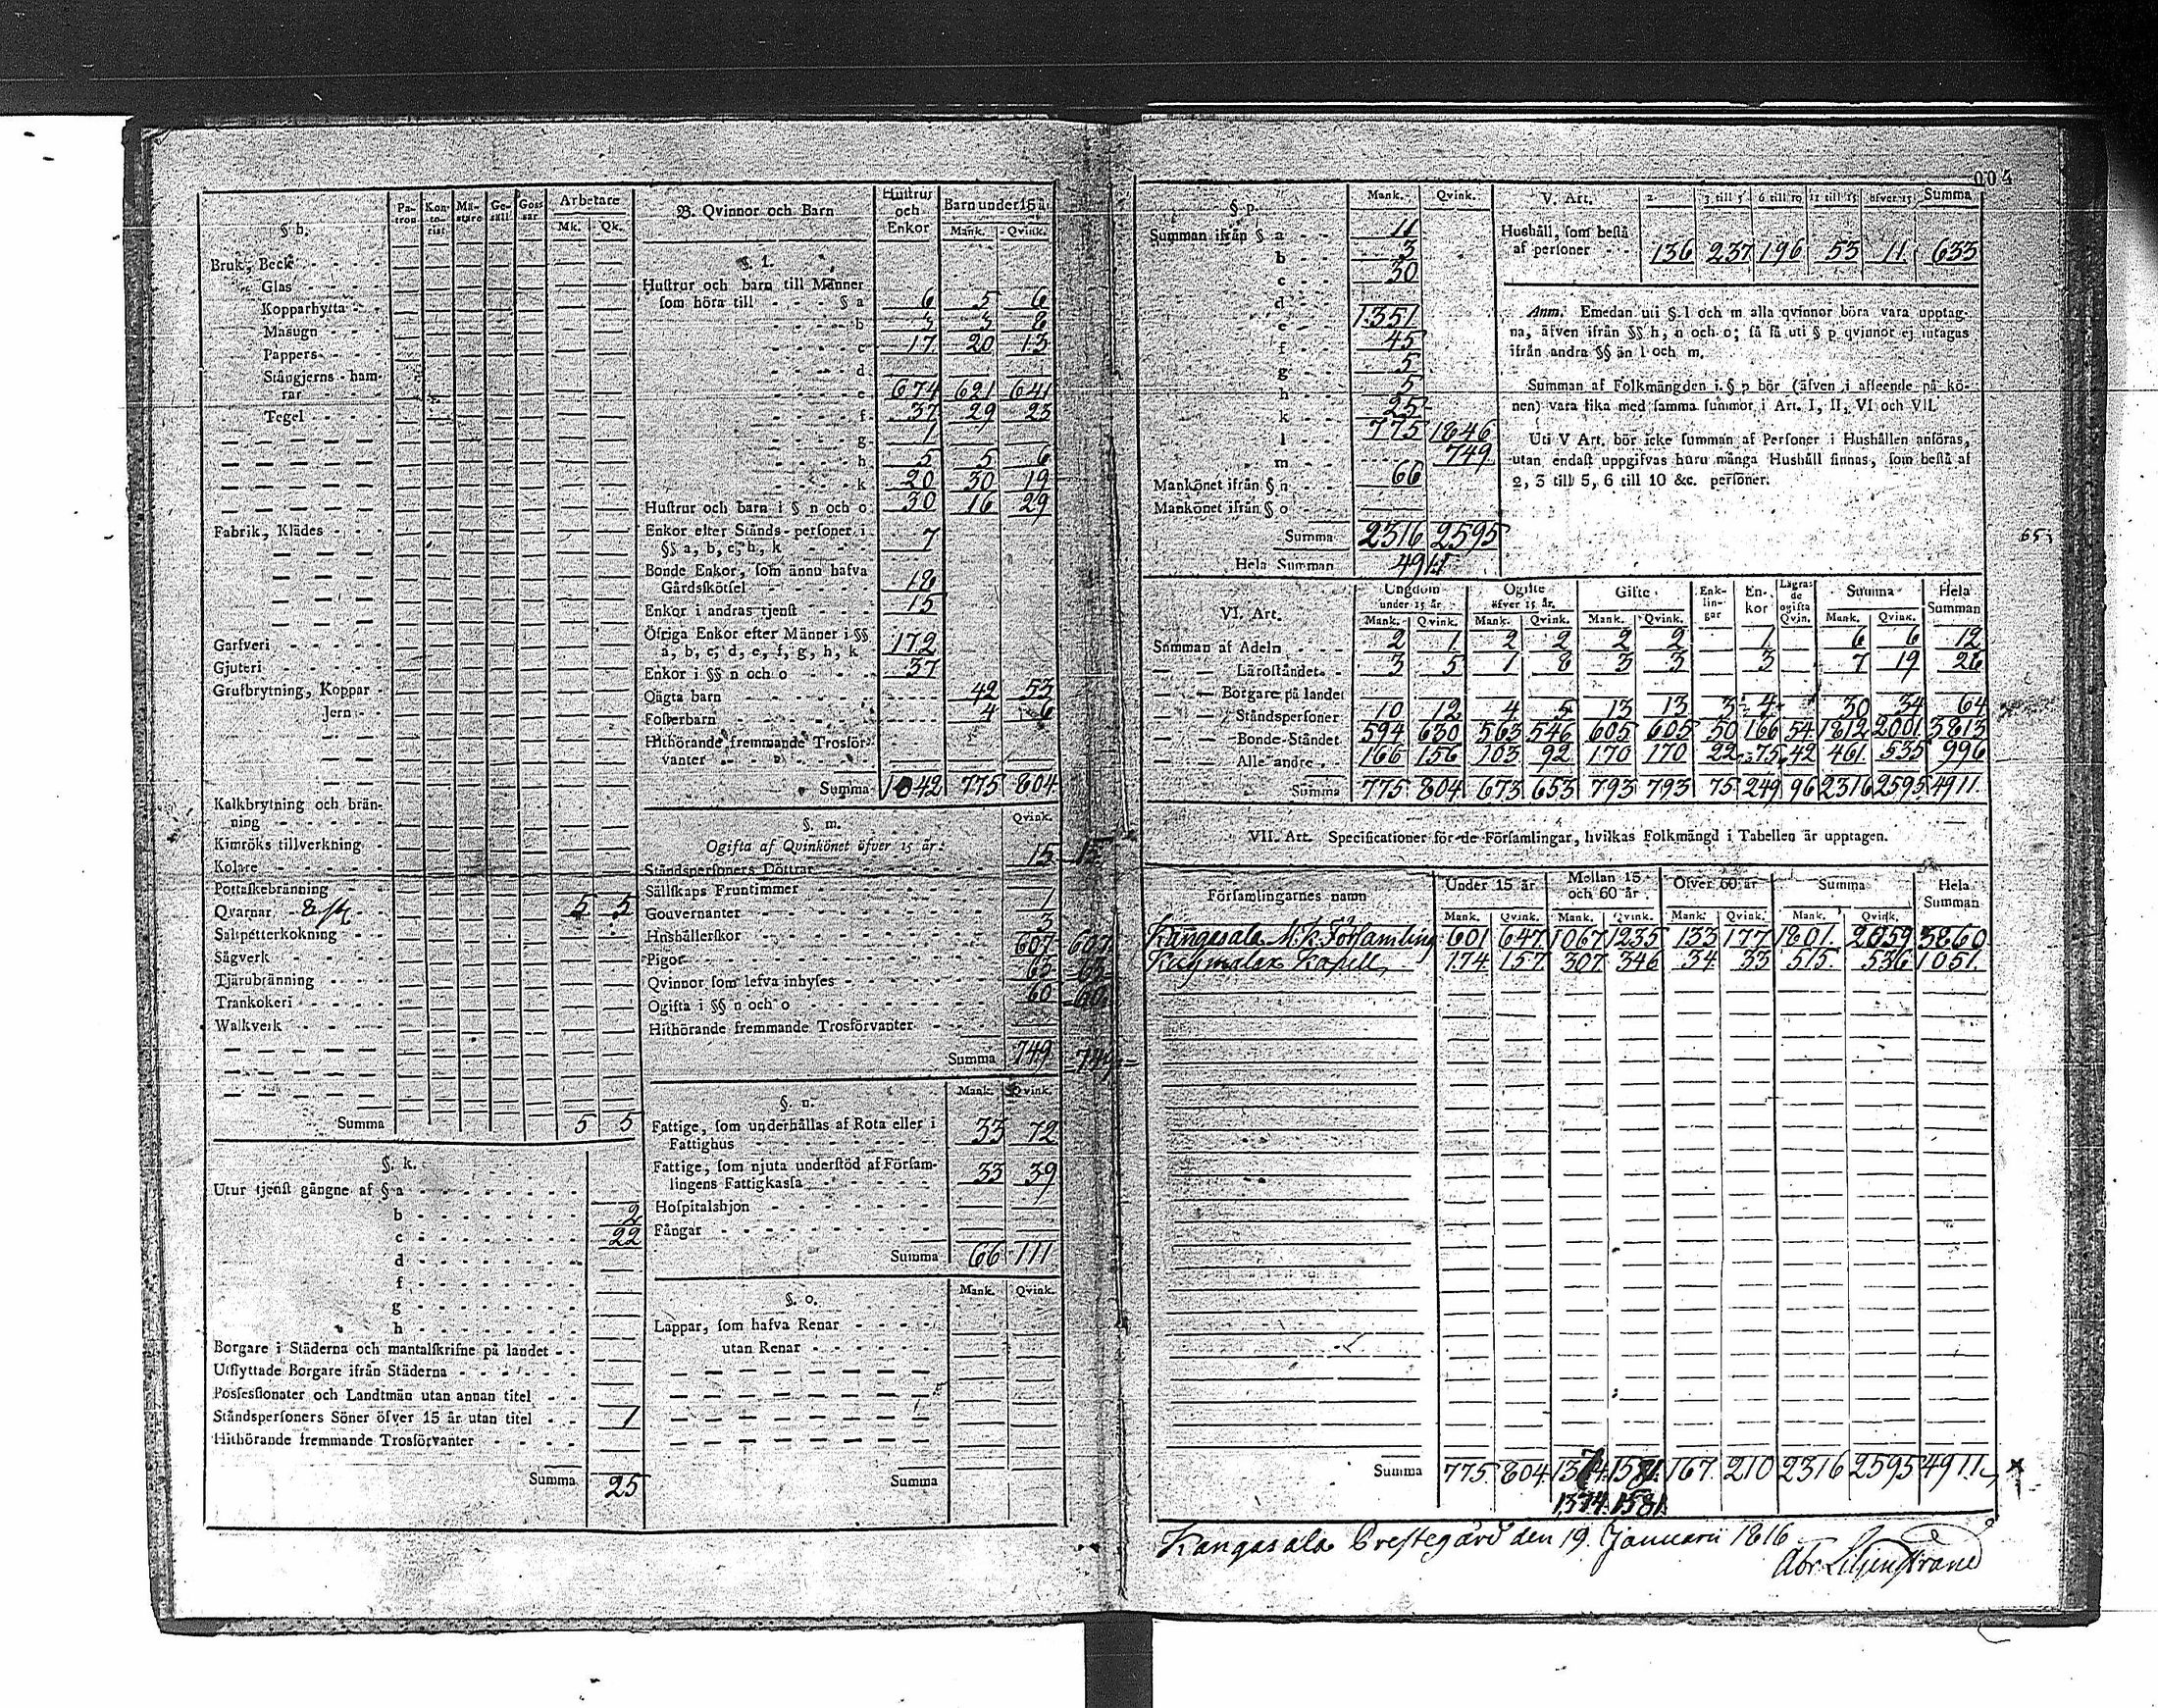 004
§ h. Pa-tron Kon-to-rist Mä-stare Ge-säll Gos-sar Arbetare Mk. Qk.
Bruk, Beck
Glas
Kopparhytta
Masugn
Pappers
Stångjerns-ham-
rar
Tegel
Fabrik, Klädes
Garfveri
Gjuteri
Grufbrytning, Koppar
Jern
Kalkbrytning och brän-
ning
Kimröks tillverkning
Kolare
Pottaskebränning
Qvarnar 5 5
Saltpetterkokning
Sågverk
Tjärubränning
Trankokeri
Walkverk
Summa 5 5
§. k.
Utur tjenst gångne af § a
b 2
c 22
d
f
g
h
Borgare i Städerna och mantalskrifne på landet
Utflyttade Borgare ifrån Städerna
Possessionater och Landtmän utan annan titel
Ståndspersoners Söner öfver 15 år utan titel 1
Hithörande fremmande Trosförvanter
Summa 25
B. Qvinnor och Barn Hustrur och Enkor Barn under 15 år Mank. Qvink.
§. l.
Hustrur och barn till Männer
som höra till § a 6 5 6
b 3 3 8
c 17 20 13
d
e 674 621 641
f 37 29 23
g 1
h 5 5 6
k 20 30 19
Hustrur och barn i § n och o 30 16 29
Enkor efter Stånds-personer i
§§ a, b, c, h, k 7
Bonde Enkor, som ännu hafva
Gårdsskötsel 18
Enkor i andras tjenst 15
Öfriga Enkor efter Männer i §§
a, b, c, d, e, f, g, h, k 172
Enkor i §§ n och o 37
Oägta barn 42 53
Fosterbarn 4 6
Hithörande fremmande Trosför-
vanter
Summa 1042 775 804
§. m. Qvink.
Ogifta af Qvinkönet öfver 15 år.
Ståndspersoners Döttrar 15 15
Sällskaps Fruntimmer
Gouvernanter 1
Hushållerskor 3
Pigor 607 607
Qvinnor som lefva inhyses 63 63
Ogifta i §§ n och o 60 60
Hithörande fremmande Trosförvanter
Summa 749 749
§. n. Mank. Qvink.
Fattige, som underhållas af Rota eller i
Fattighus 33 72
Fattige, som njuta understöd af Försam-
lingens Fattigkassa 33 39
Hospitalshjon
Fångar
Summa 66 111
§. o. Mank. Qvink.
Lappar, som hafva Renar
utan Renar
Summa
§ p. Mank. Qvink.
Summan ifrån § a 11
b 3
c 30
d
e 1351
f 45
g 5
h 5
k 25
l 775 1846
m 749
Mankönet ifrån § n 66
Mankönet ifrån § o
Summa 2316 2595
Hela Summan 4911
V. Art. 2 3 till 5 6 till 10 11 till 15 öfver 15 Summa
Hushåll, som bestå
af personer 136 237 196 53 11 633
Anm. Emedan uti § l och m alla qvinnor böra vara upptag-
na, äfven ifrån §§ h, n och o; så få uti § p qvinnor ej intagas
ifrån andra §§ än l och m.
Summan af Folkmängden i § p bör (äfven i afseende på kö-
nen) vara lika med samma summor i Art. I, II, VI och VII.
Uti V Art. bör icke summan af Personer i Hushållen anföras,
utan endast uppgifvas huru många Hushåll finnas, som bestå af
2, 3 till 5, 6 till 10 &c. personer.
65
VI. Art. Ungdom under 15 år Ogifte öfver 15 år. Gifte Enk-lin-gar En-kor Lägra-de ogifta Qvin. Summa Hela Summan
Mank. Qvink. Mank. Qvink. Mank. Qvink. Mank. Qvink.
Summan af Adeln 2 1 2 2 2 2 1 6 6 12
Läroståndet 3 5 1 8 3 3 3 7 19 26
Borgare på landet
Ståndspersoner 10 12 4 5 13 13 3 4 30 34 64
Bonde-Ståndet 594 630 563 546 605 605 50 166 54 1812 2001 3813
Alle andre 166 156 103 92 170 170 22 75 42 461 535 996
Summa 775 804 673 653 793 793 75 249 96 2316 2595 4911.
VII. Art. Specificationer för de Församlingar, hvilkas Folkmängd i Tabellen är upptagen.
Församlingarnes namn Under 15 år Mellan 15 och 60 år Öfver 60 år Summa Hela Summan
Mank. Qvink. Mank. Qvink. Mank. Qvink. Mank. Qvink.
Kangasala M. k. Församling 601 647 1067 1235 133 177 1801. 2059 3860
Kuhmalax Kapell 174 157 307 346 34 33 515. 536 1051.
Summa 775 804 1374 1581 167 210 2316 2595 4911
1374. 1581.
Kangasala Prestegård den 19. Januarii 1816
Abr. Liljenstrand